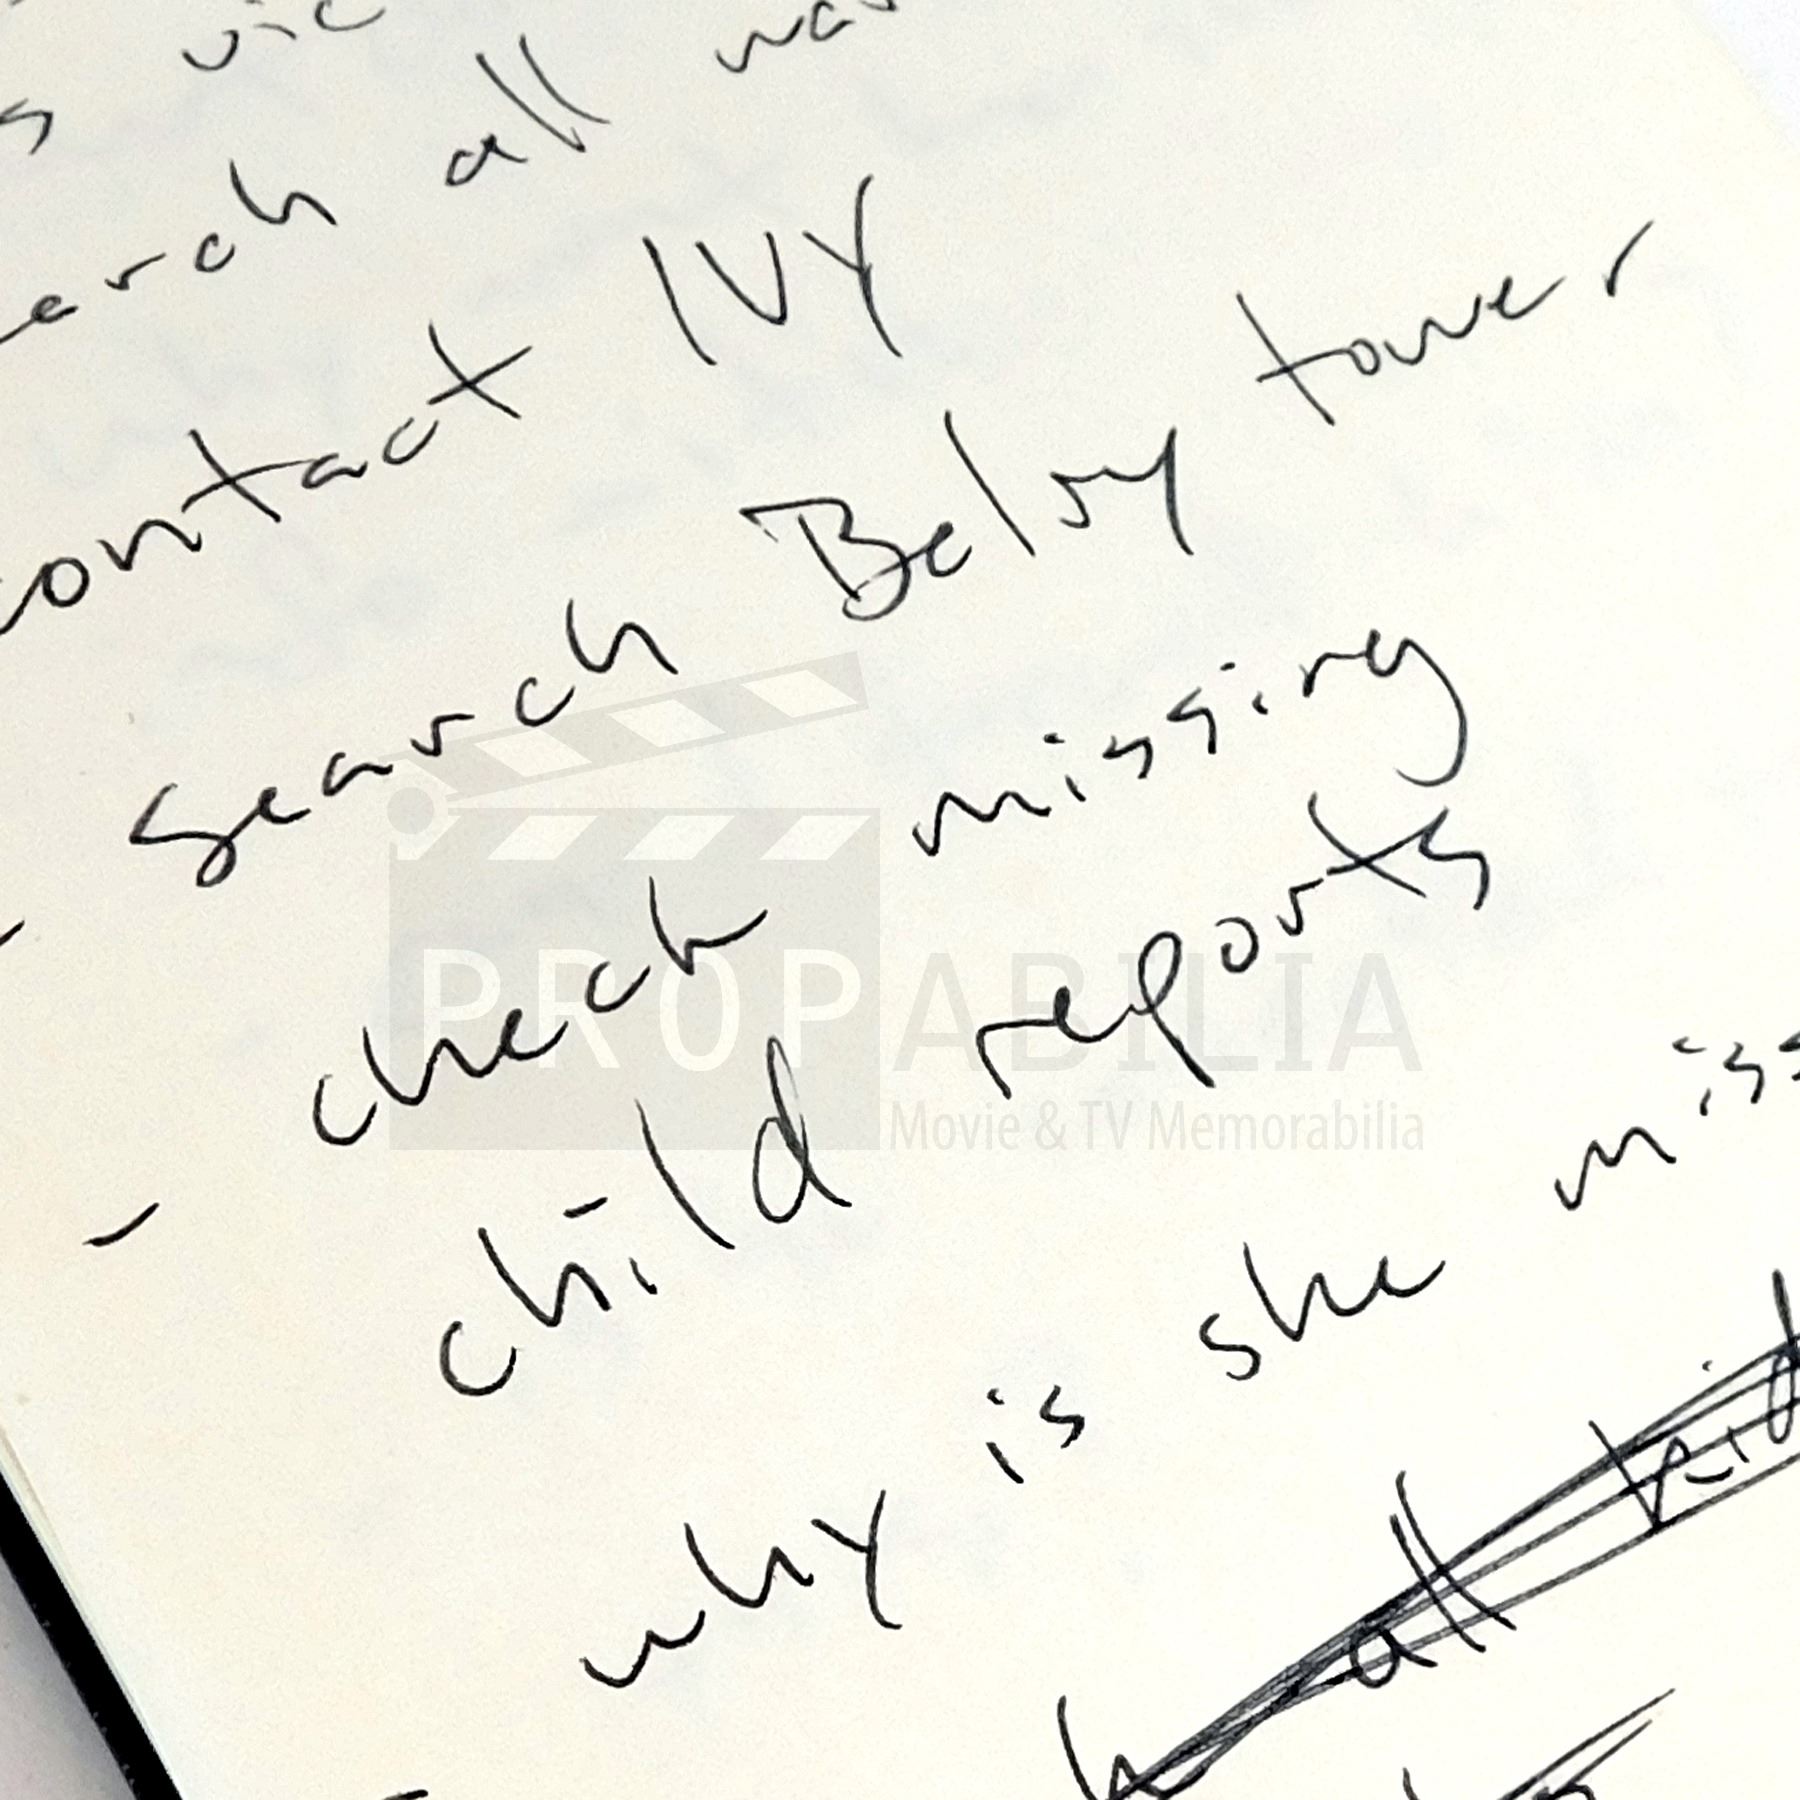 all
contact IVY
- search Belsy tower
- check missing
child reports
why is she
all kid
PROPABILIA
Movie & TV Memorabilia